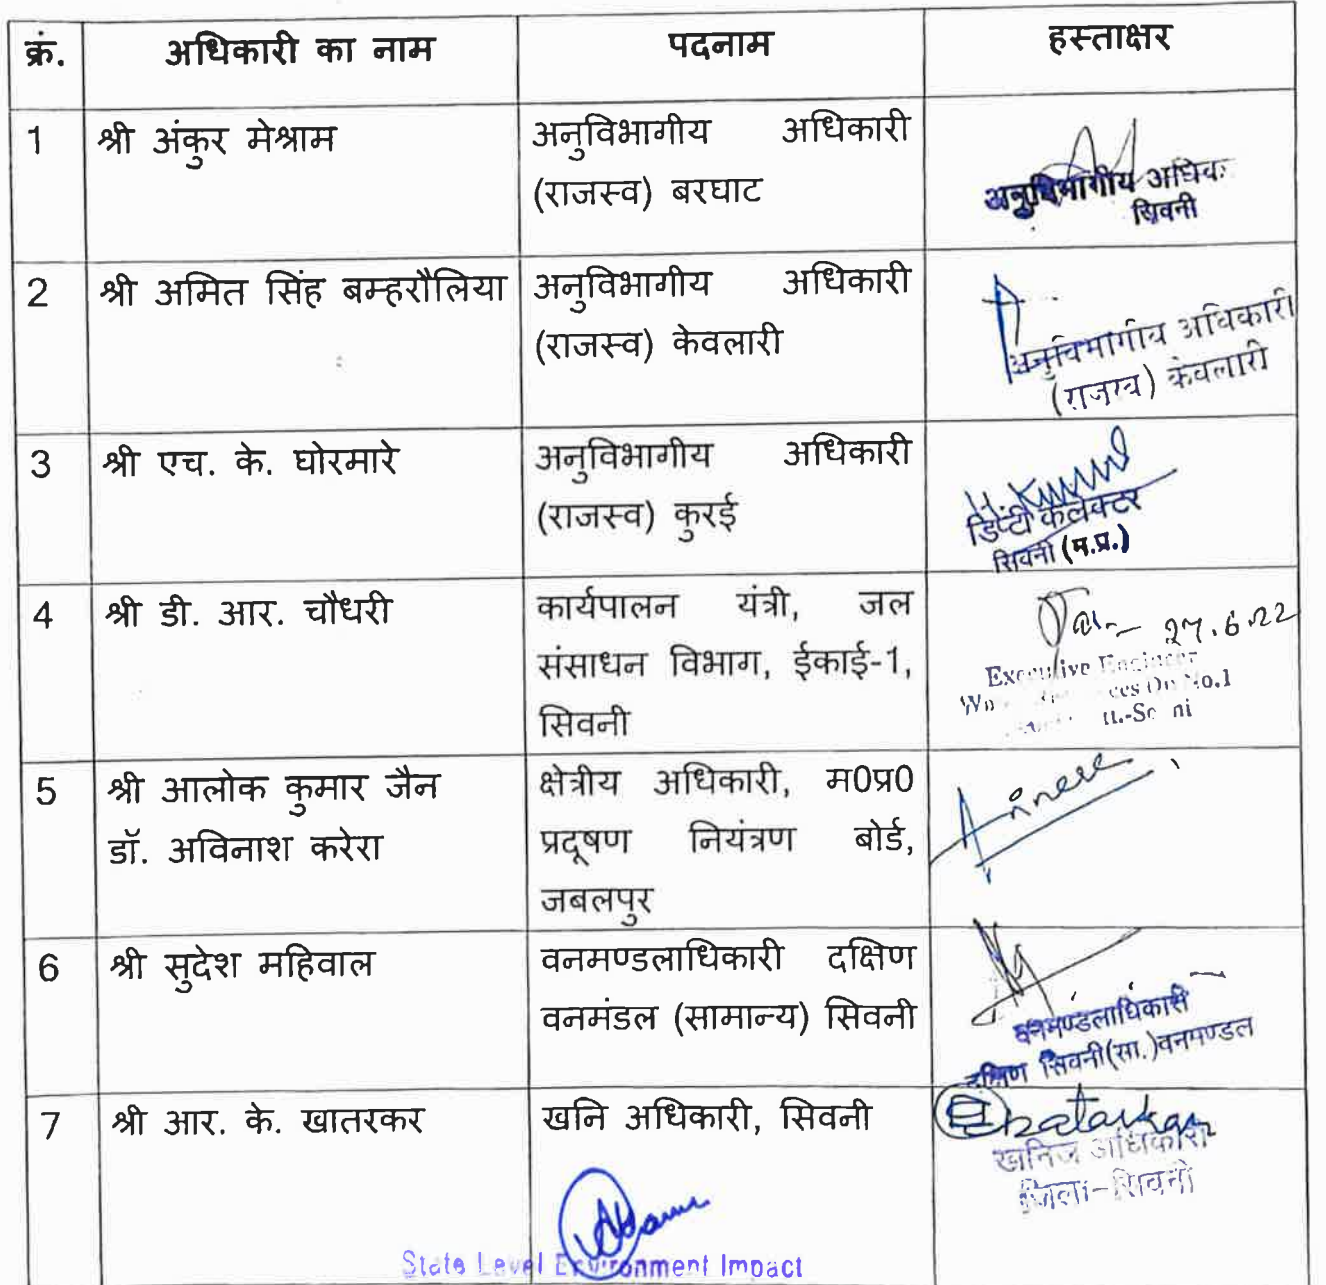 क्रं. अधिकारी का नाम पदनाम हस्ताक्षर
1 श्री अंकुर मेश्राम अनुविभागीय अधिकारी
(राजस्व) बरघाट
अनुविभागीय
सिवनी
2 श्री अमित सिंह बम्हरौलिया अनुविभागीय अधिकारी
(राजस्व) केवलारी
अनुविभागीय अधिकारी
(राजस्व) केवलारी
3 श्री एच. के. घोरमारे अनुविभागीय अधिकारी
(राजस्व) कुरई
डिप्टी कलेक्टर
सिवनी (म.प्र.)
4 श्री डी. आर. चौधरी कार्यपालन यंत्री, जल
संसाधन विभाग, ईकाई-1,
सिवनी
27.6.22
Executive Engineer
No.1
5 श्री आलोक कुमार जैन क्षेत्रीय अधिकारी, म0प्र0
डॉ. अविनाश करेरा प्रदूषण नियंत्रण बोर्ड,
जबलपुर
6 श्री सुदेश महिवाल वनमण्डलाधिकारी दक्षिण
वनमंडल (सामान्य) सिवनी
वनमण्डलाधिकारी
दक्षिण सिवनी(सा.)वनमण्डल
7 श्री आर. के. खातरकर खनि अधिकारी, सिवनी
खनिज अधिकारी
जिला-सिवनी
State Level Environment Impact